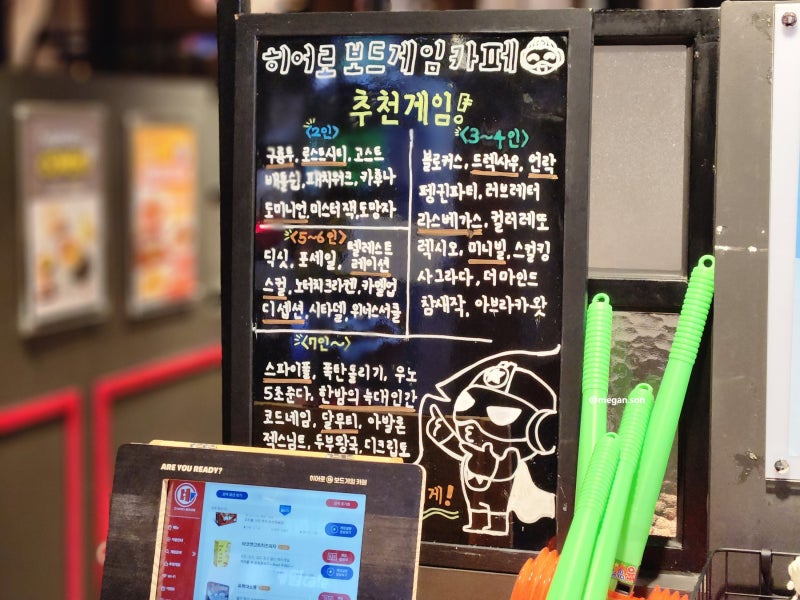 히어로 보드게임카페
추천게임!
<2인>
구룡투, 로스트시티, 고스트
배틀쉽, 패치워크, 카루나
도미니언, 미스터잭, 도망자
<3~4인>
블로커스, 드렉사우, 언락
펭귄파티, 러브레터
라스베가스, 컬러레또
렉시오, 미니빌, 스컬킹
사그라다, 더마인드
참새작, 아브라카왓
<5~6인>
딕싯, 포세일, 텔레스트
레이션
스컬, 노터치크라켄, 카멜업
디셉션, 시타델, 위너스서클
<7인~>
스파이폴, 폭탄돌리기, 우노
5초준다, 한밤의 늑대인간
코드네임, 달무티, 아발론
젝스님트, 두부왕국, 디크립토
게!
@megan.son
ARE YOU READY?
히어로 보드게임 카페